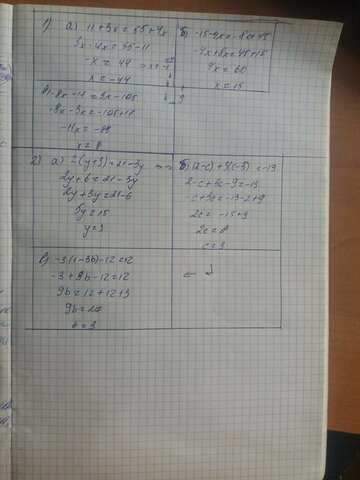 1) а) 11 + 3x = 55 + 4x
3x - 4x = 55 - 11
-x = 44
x = -44
б) -15 - 4x = -8x + 45
-4x + 8x = 45 + 15
4x = 60
x = 15
в) -8x - 17 = 3x - 105
-8x - 3x = -105 + 17
-11x = -88
x = 8
2) а) 2(y+3) = 21 - 3y
2y + 6 = 21 - 3y
2y + 3y = 21 - 6
5y = 15
y = 3
б) (2-c) + 3(c-3) = -13
2 - c + 3c - 9 = -13
-c + 3c = -13 - 2 + 9
2c = -15 + 9
в) -3(1-3b) - 12 = 12
-3 + 9b - 12 = 12
9b = 12 + 12 + 3
9b = 27
b = 3